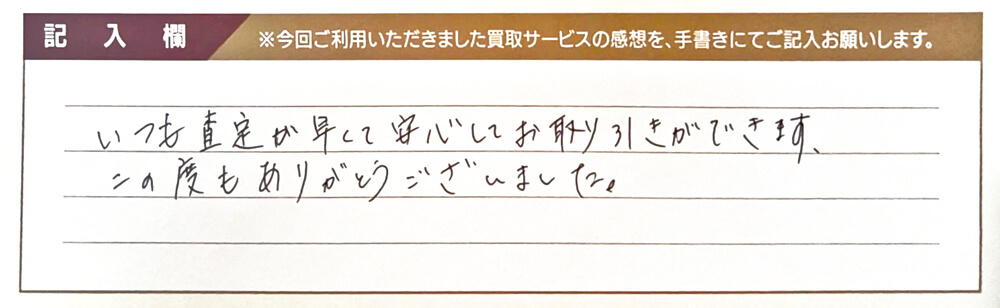 記入欄
※今回ご利用いただきました買取サービスの感想を、手書きにてご記入お願いします。
いつも査定が早くて安心してお取り引きができます、
この度もありがとうございました。